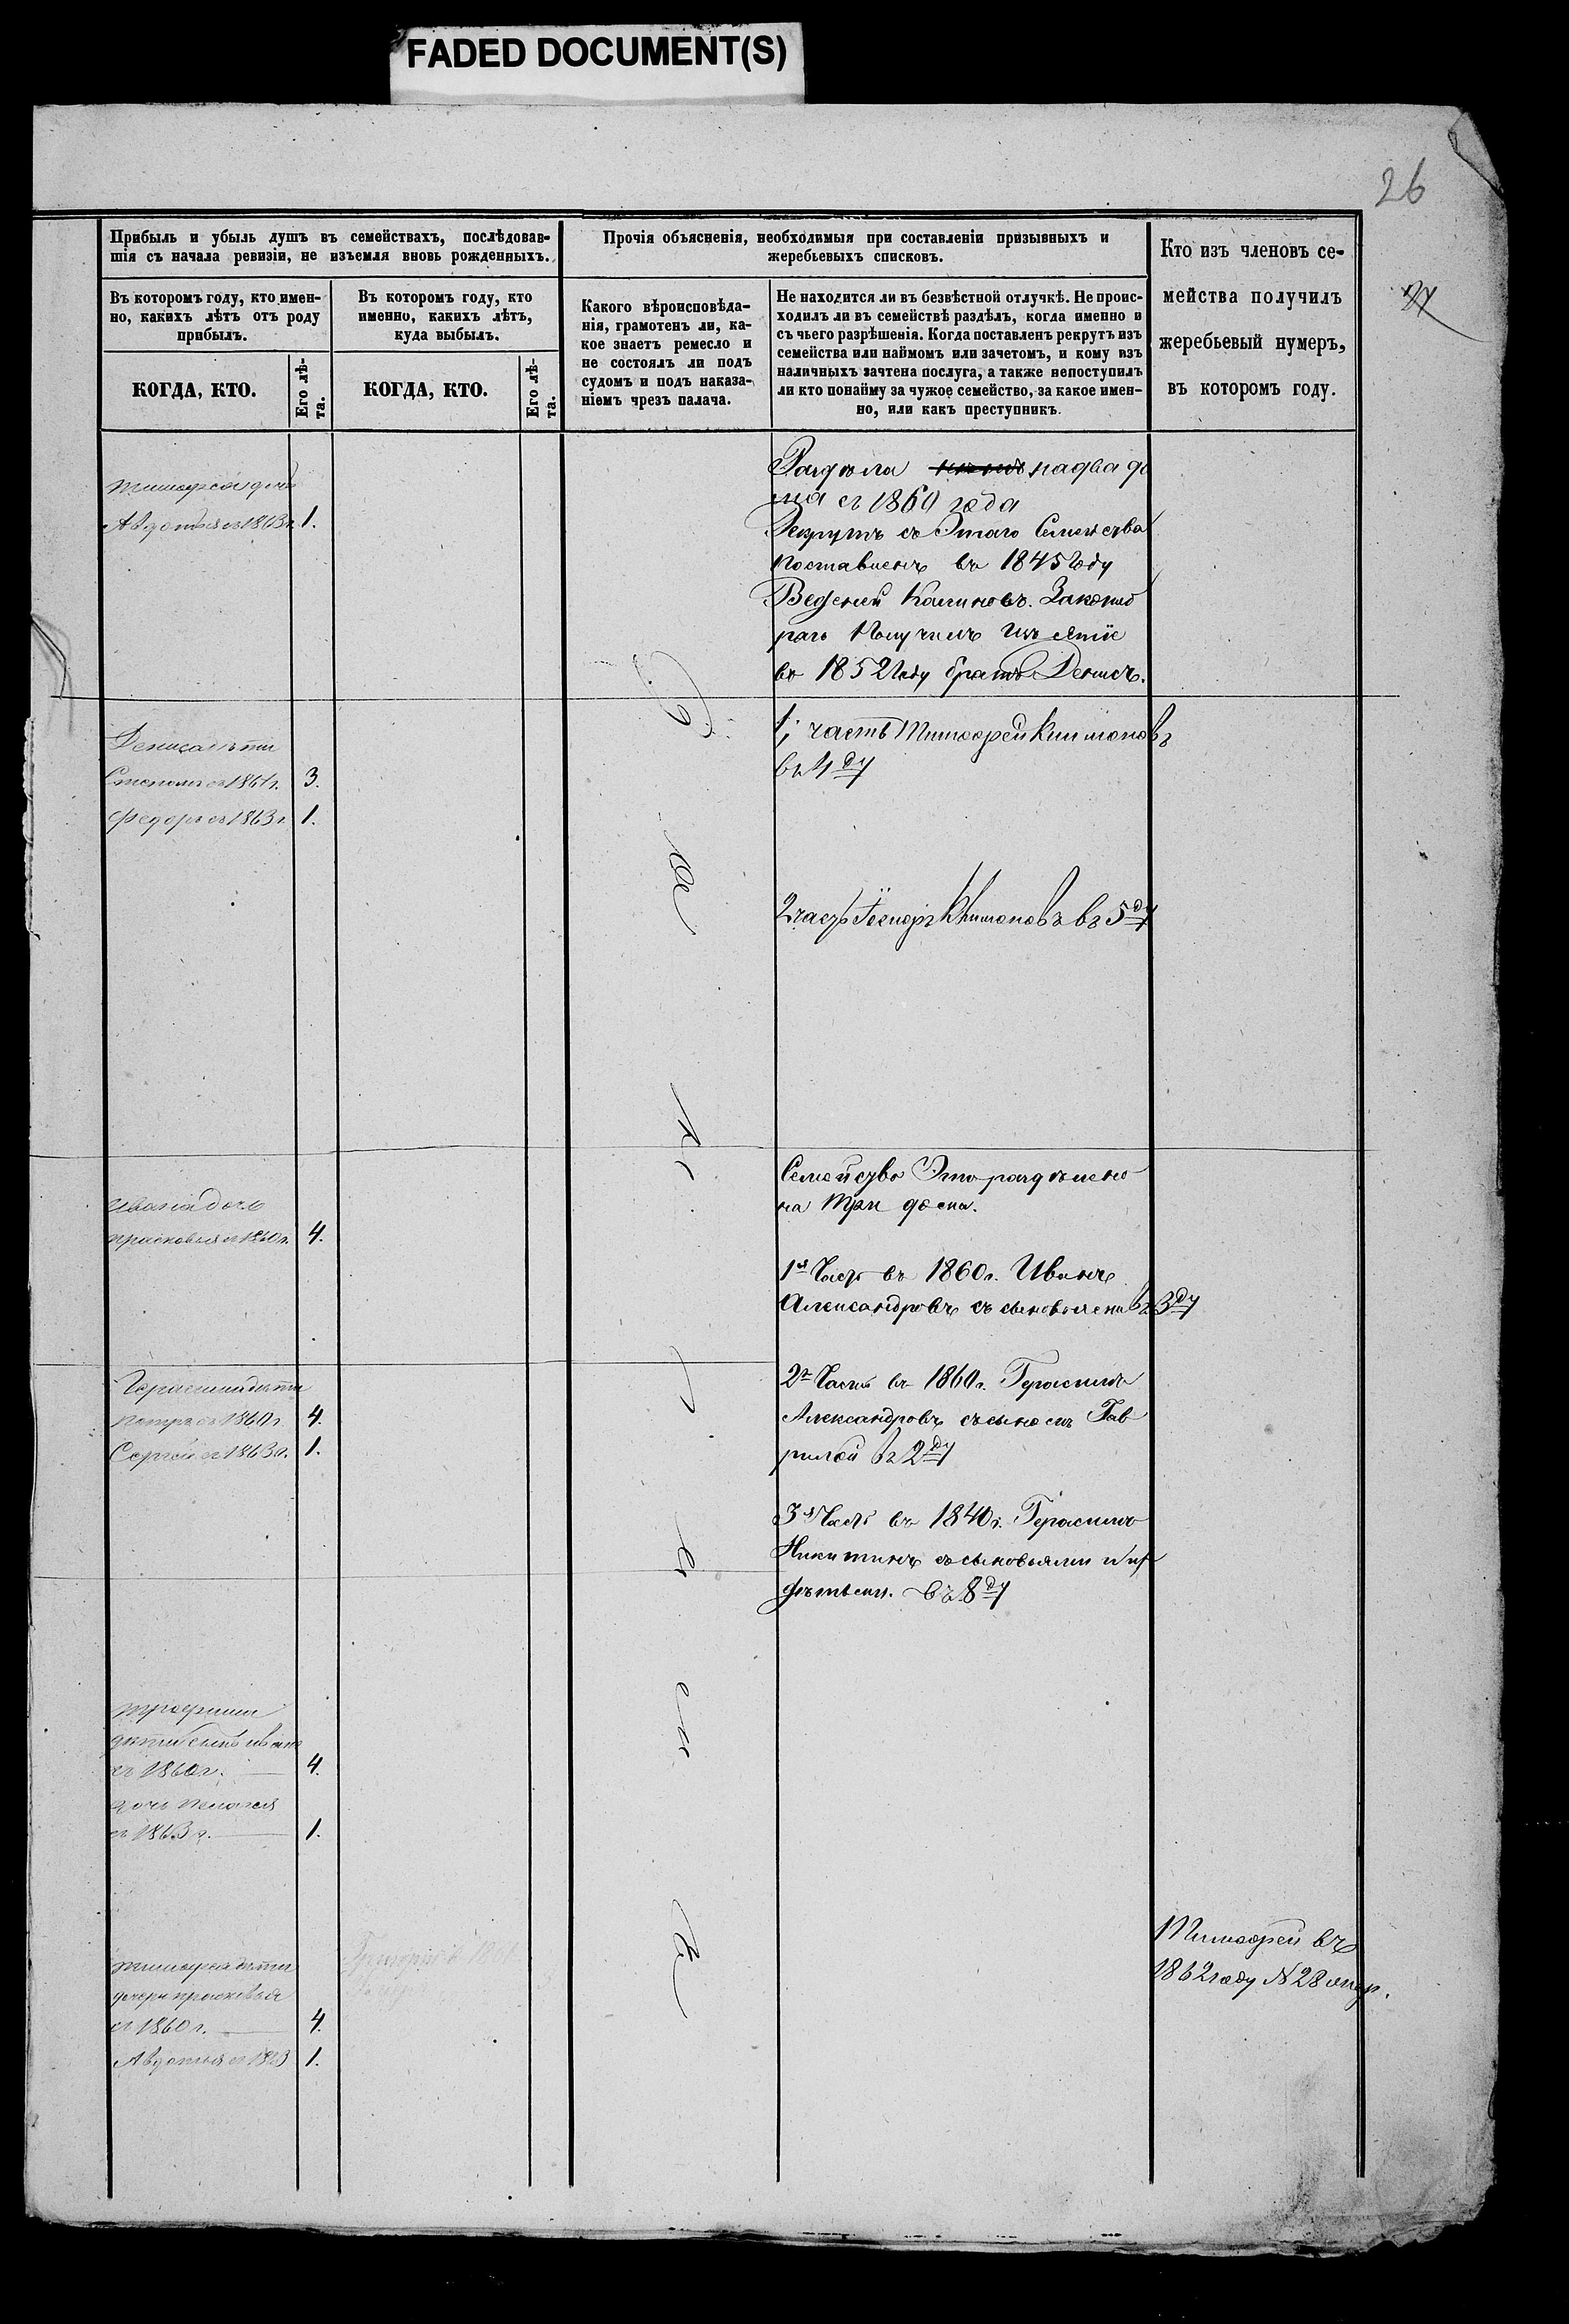 FADED DOCUMENT(S)
26
27
Прибыль и убыль душъ въ семействахъ, послѣдовав-
шія съ начала ревизіи, не изъемля вновь рожденныхъ.
Прочія объясненія, необходимыя при составленіи призывныхъ и
жеребьевыхъ списковъ.
Кто изъ членовъ се-
мейства получилъ
жеребьевый нумеръ,
въ которомъ году.
Въ которомъ году, кто имен-
но, какихъ лѣтъ отъ роду
прибылъ.
Въ которомъ году, кто
именно, какихъ лѣтъ,
куда выбылъ.
Какого вѣроисповѣда-
нія, грамотенъ ли, ка-
кое знаетъ ремесло и
не состоялъ ли подъ
судомъ и подъ наказа-
ніемъ чрезъ палача.
Не находится ли въ безвѣстной отлучкѣ. Не проис-
ходилъ ли въ семействѣ раздѣлъ, когда именно и
съ чьего разрѣшенія. Когда поставленъ рекрутъ изъ
семейства или наймомъ или зачетомъ, и кому изъ
наличныхъ зачтена послуга, а также непоступилъ
ли кто понайму за чужое семейство, за какое имен-
но, или какъ преступникъ.
КОГДА, КТО.
Его лѣ-
та.
КОГДА, КТО.
Его лѣ-
та.
Тимофея дочь
Авдотья съ 1863 г. 1.
на два до
ма съ 1860 года
Рекрутъ съ Этаго Семейства
поставленъ въ 1845 Году
получилъ
въ 1852 Году братъ Денисъ.
Дениса дѣти
Степанъ съ 1861 г. 3.
Федоръ съ 1863 г. 1.
1; часть Тимофей Климоновъ
въ 4ду
2 часть Климоновъ въ 5ду
Ивана дочь
Прасковья съ 1860 г. 4.
Семейство Это раздѣлено
на Три дома.
1я Часть въ 1860 г. Иванъ
Александровъ съ сыновьями въ 3ду
Герасима дѣти
Петръ съ 1860 г. 4.
Сергей съ 1863 г. 1.
2я Часть въ 1860 г. Герасимъ
Александровъ съ сыномъ Гав
рилой въ 2ду
3я Часть въ 1840 г. Герасимъ
Никитинъ съ сыновьями и их
дѣтьми. въ 8ду
Трофима
дѣти сынъ Иванъ
съ 1860 г. 4.
дочь Пелагея
съ 1863 г. 1.
Тимофея дѣти
дочери Прасковья
съ 1860 г. 4.
Авдотья съ 1863 1.
Григорій
Тимофей въ
1862 году N 28